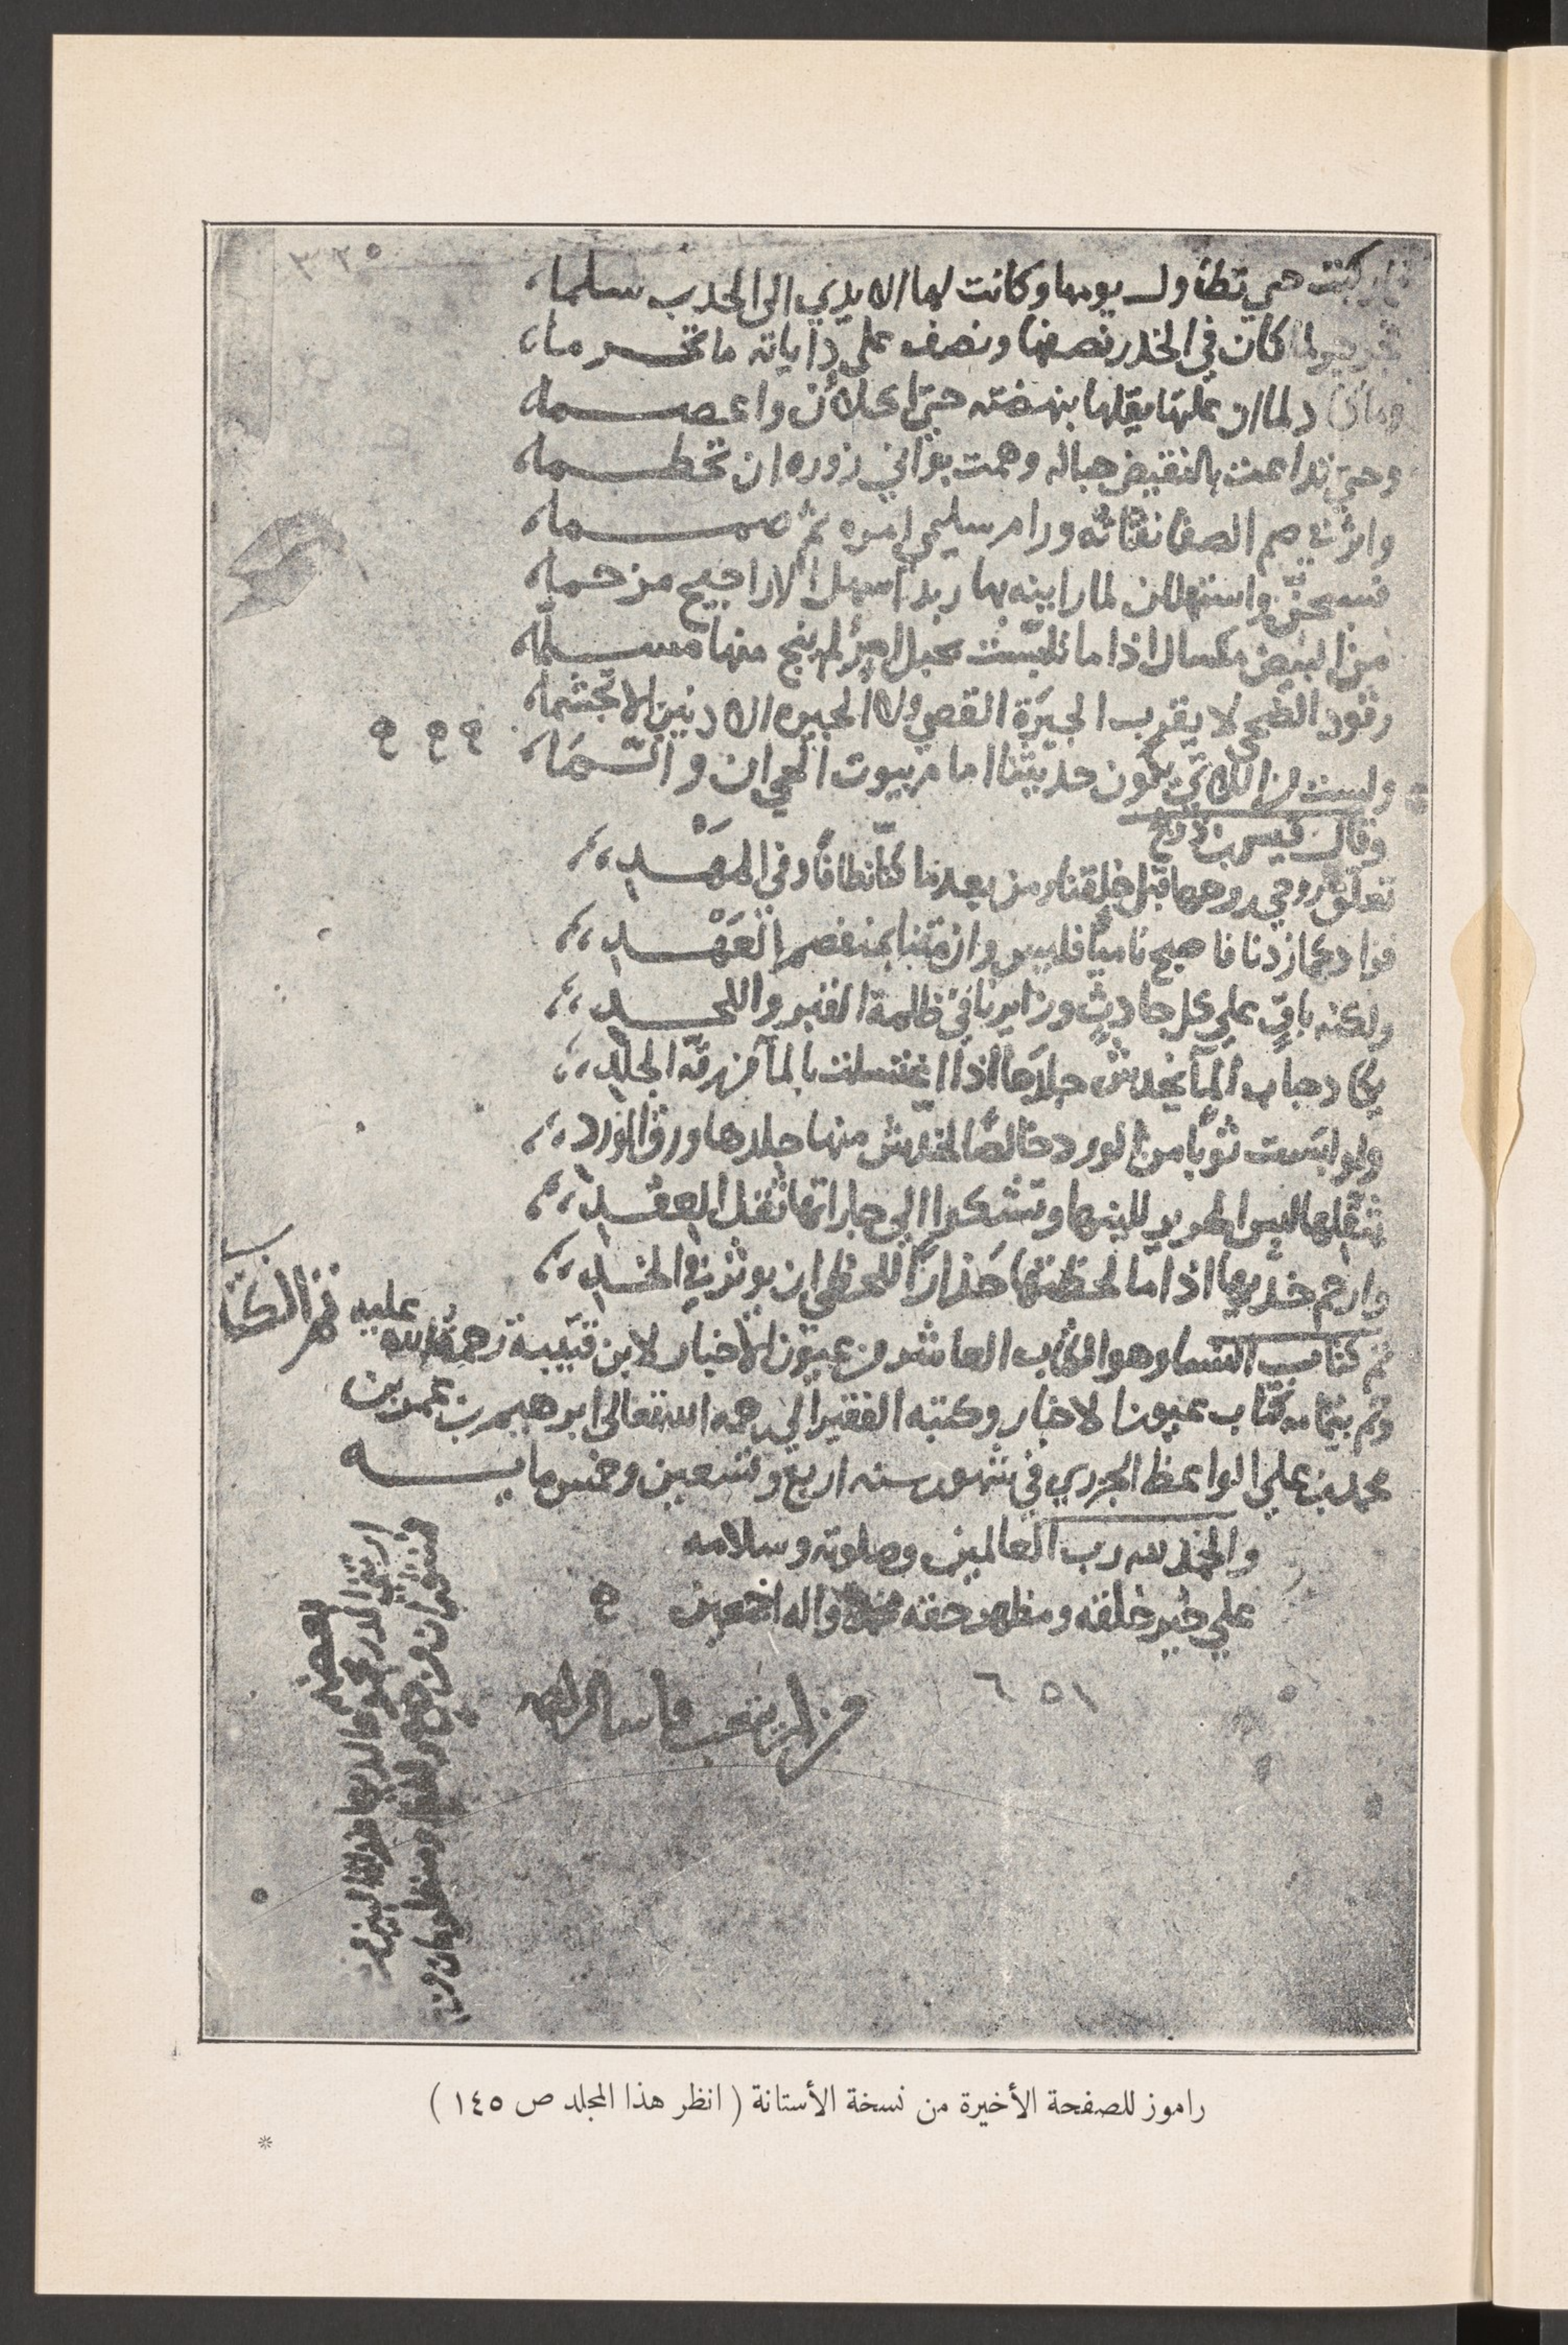 ٣٢٥
حتى تطاول يومها وكانت لها الايدي الى الخدب سلما
كان في الخدر نصفها ونصف على داياته ما تخرما
علتها يقلها بنهضته حتى اكلأن واعصما
وحتى تداعت بالنقيض حباله وهمت بواني زوره ان تحطما
واثر في صم الصفا نفثاته ورام سليمى امره ثم صمما
فسبحن واستهللن لما راينه بها ربدا سهل الاراجيح مزحما
من البيض مكسال اذا ما تلبست بحبل امرئ لم ينج منها مسلما
رقود الضحى لا يقرب الجيرة القصى ولا الجيره الادنين الا تجشما
وليست من اللاتي يكون حديثها امام بيوت الحي ان وانما
وقال قيس بن ذريح
تعلق روحي روحها قبل خلقنا ومن بعد ما كنا نطافا وفي المهد
فزاد كما زدنا فاصبح ناميا فليس وان متنا بمنفصم العهد
ولكنه باق على كل حادث وزايرنا في ظلمة القبر واللحد
يكاد حباب المآ يخدش جلدها اذا اغتسلت بالمآ من رقة الجلد
ولو لبست ثوبا من الورد خالصا لخدش منها جلدها ورق الورد
يثقلها لبس الحرير للينها وتشكوا الى جاراتها ثقل العقد
وارحم خديها اذا ما لحظتها حذارا للحظي ان يوثر في الخد
تم كتاب النسا وهو الكتاب العاشر من عيون الاخبار لابن قتيبة رحمة الله عليه
وتم بتمامه كتاب عيون الاخبار وكتبه الفقير الى رحمه الله تعالى ابرهيم بن عمر بن
محمد بن علي الواعظ الجزري في شهور سنه اربع وتسعين وخمس مايه
والحمد لله رب العالمين وصلوته وسلامه
على خير خلقه ومظهر حقه محمد واله اجمعين
راموز للصفحة الأخيرة من نسخة الأستانة ( انظر هذا المجلد ص ١٤٥ )
*